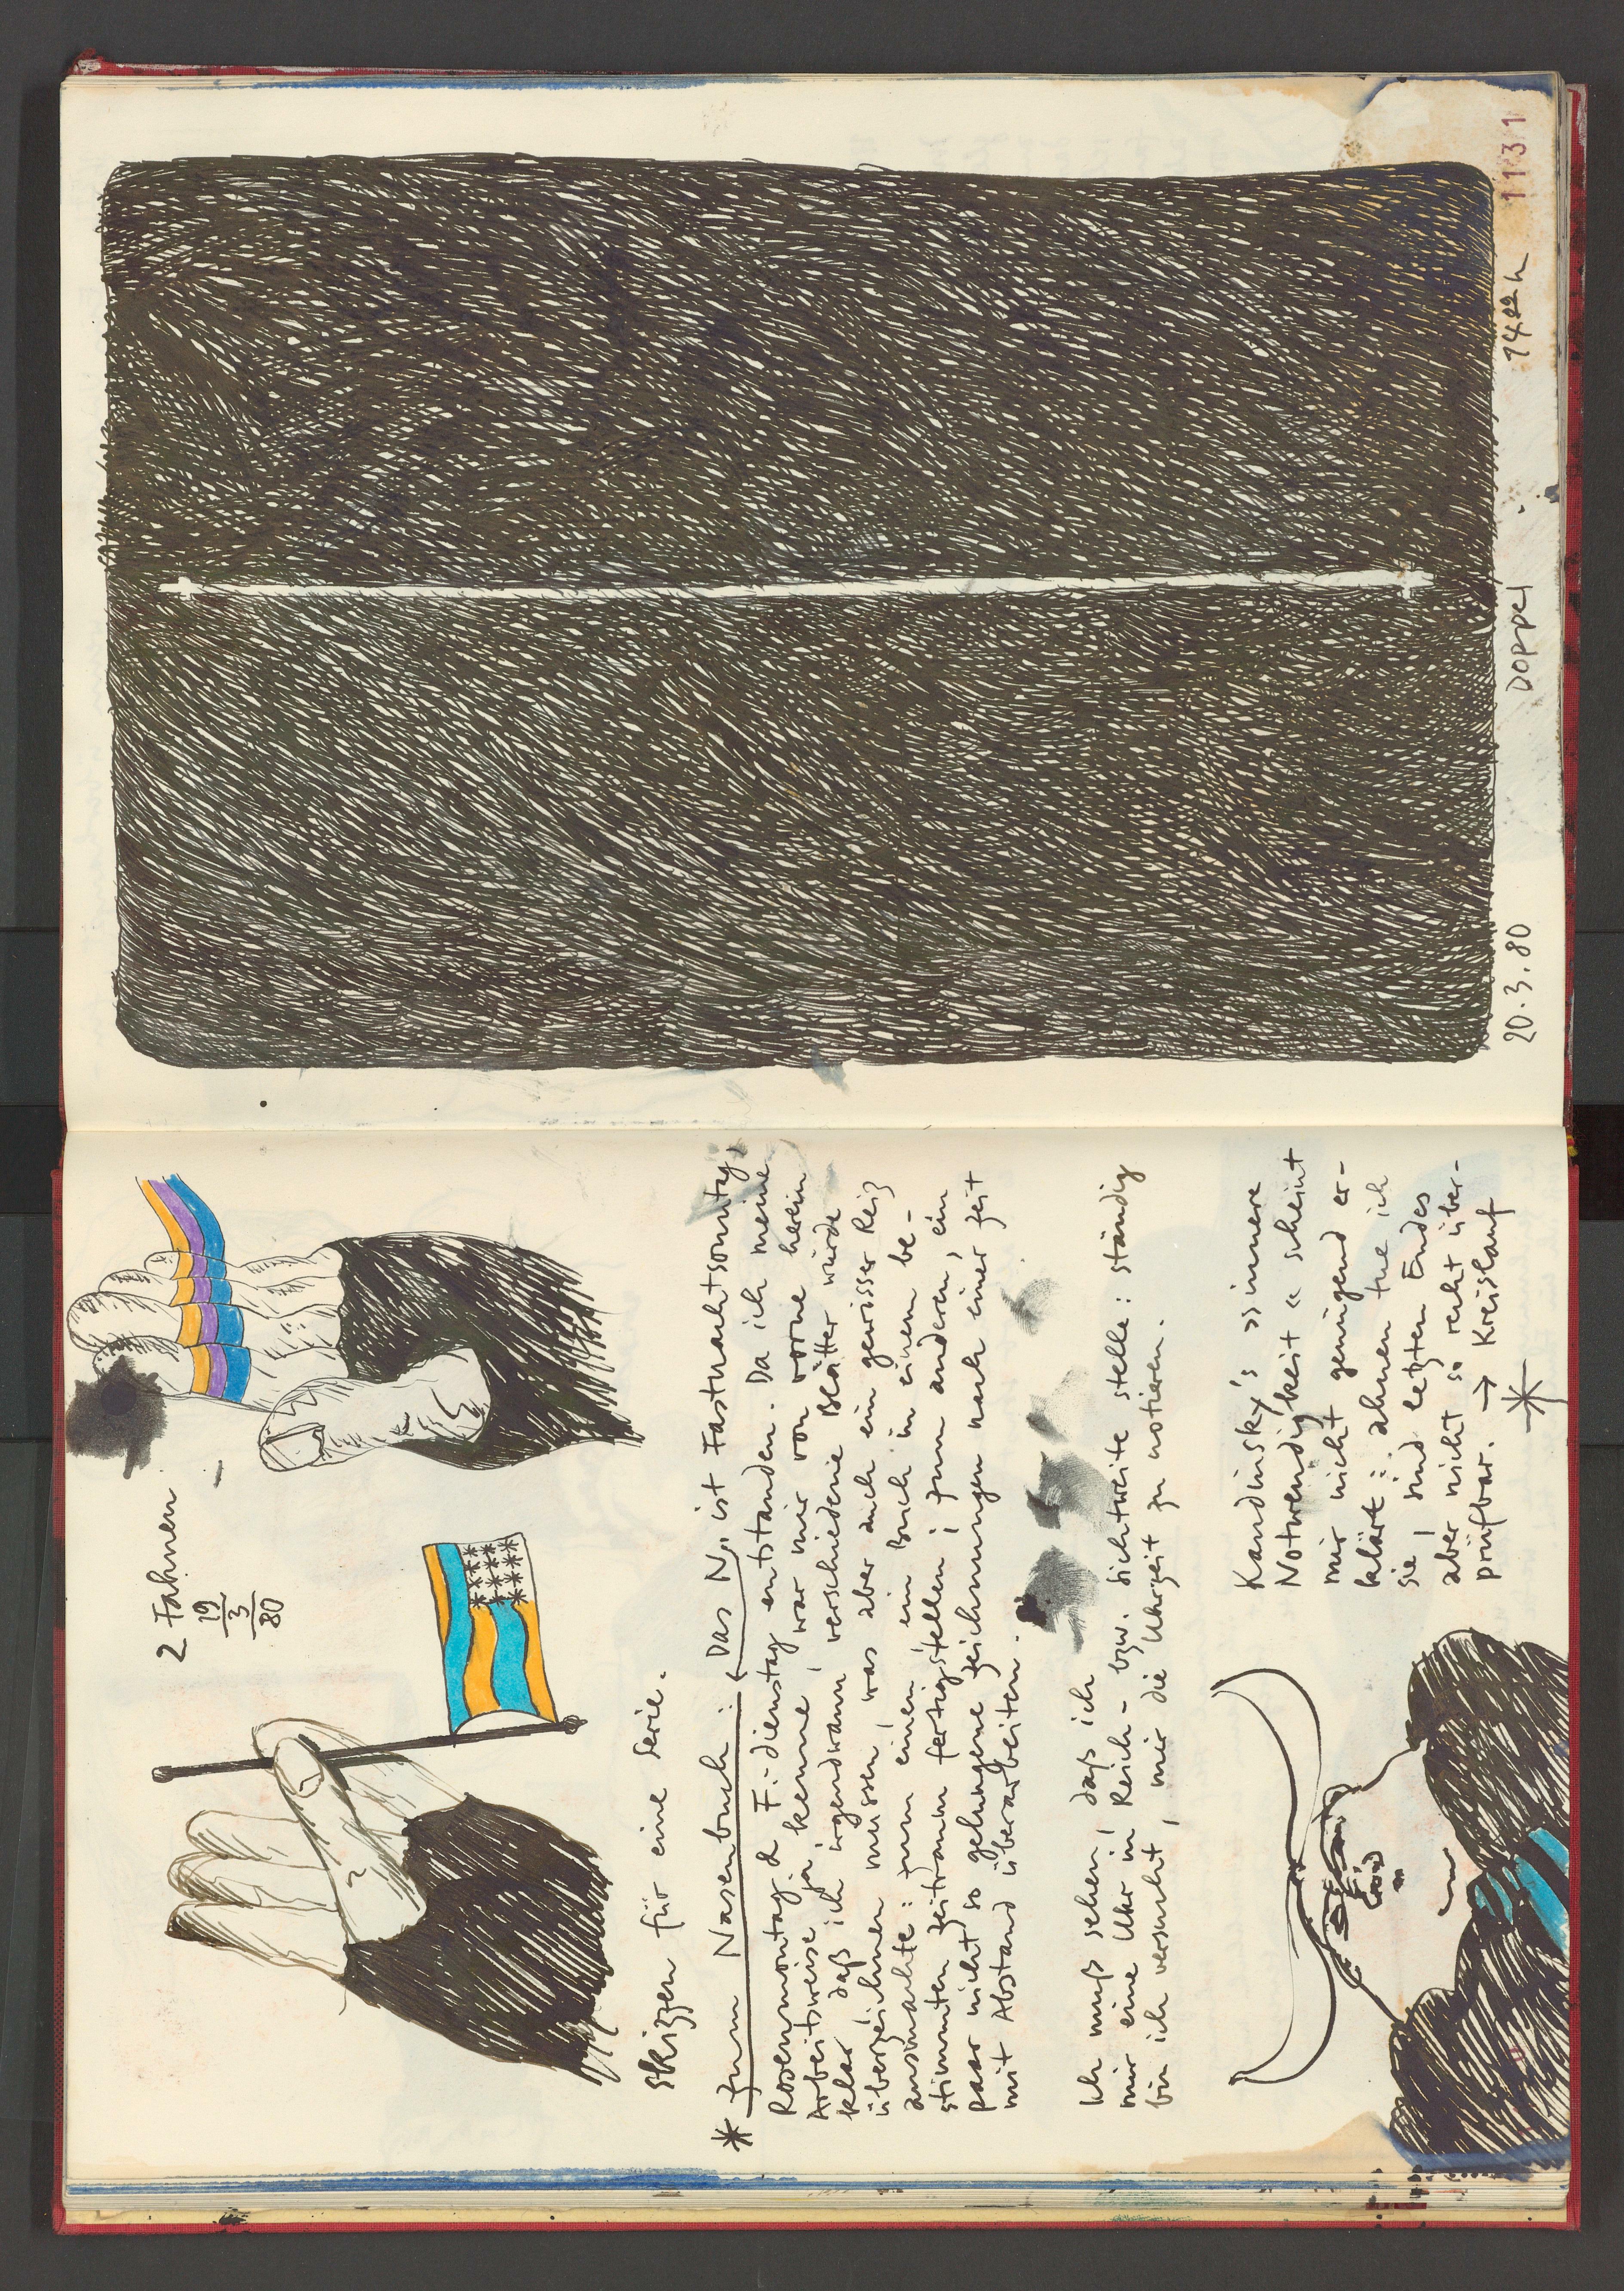 2 Fahnen
19
3
80
Skizzen für eine Serie.
* zum Nasenbuch: Das N. ist Fastnachtsonntag,
Rosenmontag & F.-dienstag entstanden. Da ich meine
Arbeitsweise ja kenne, war mir von vorne herein
klar, daß ich irgendwann verschiedene Blätter würde
überzeichnen müssen, was aber auch ein gewisser Reiz
ausmachte: zum einen, ein Buch in einem be-
stimmten Zeitraum fertigstellen; zum anderen, ein
paar nicht so gelungene Zeichnungen nach einer Zeit
mit Abstand überarbeiten.
Ich muß sehen, daß ich
mir eine Uhr in Reich- bzw. Sichtweite stelle: ständig
bin ich versucht, mir die Uhrzeit zu notieren.
Kandinsky's »innere
Notwendigkeit« scheint
mir nicht genügend er-
klärt: ahnen tue ich
sie, sind letzten Endes
aber nicht so recht über-
prüfbar. → Kreislauf
*
20.3.80 Doppel. 14²² h 1131